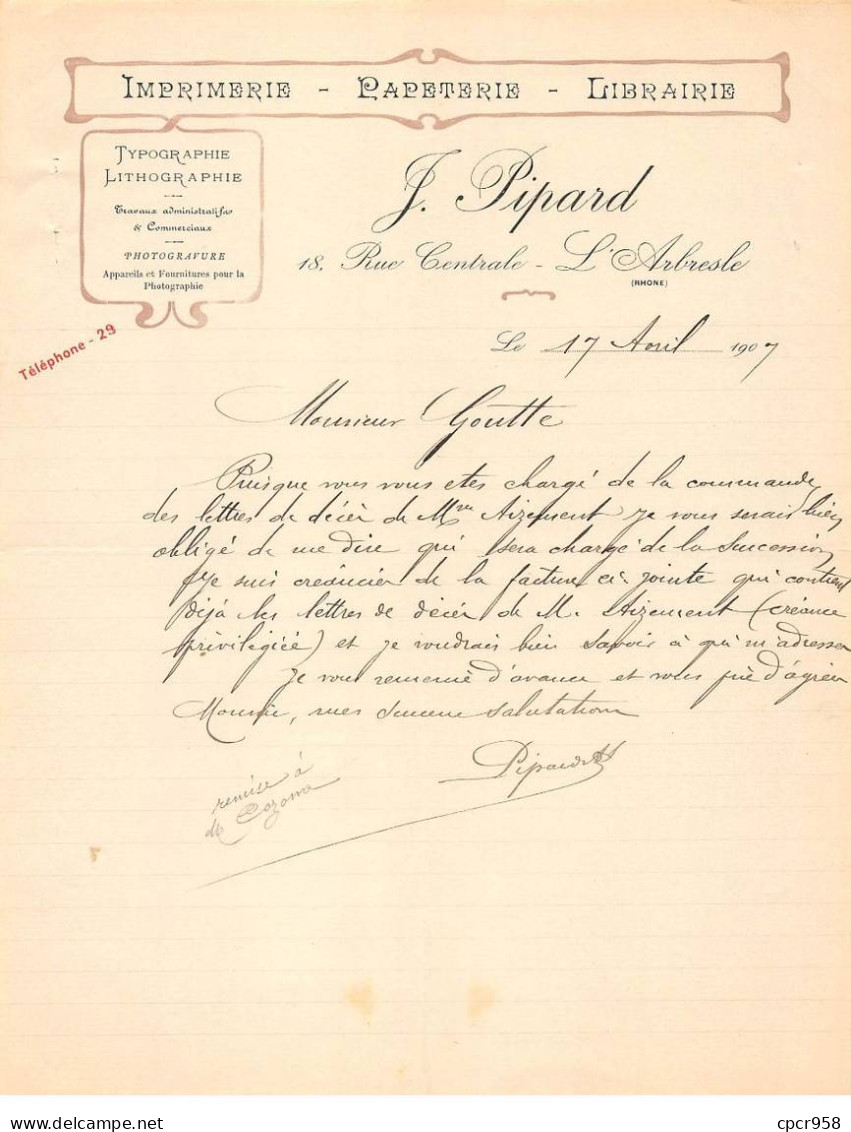 IMPRIMERIE - PAPETERIE - LIBRAIRIE
TYPOGRAPHIE
LITHOGRAPHIE
Travaux administratifs
& Commerciaux
PHOTOGRAVURE
Appareils et Fournitures pour la
Photographie
Téléphone - 29
J. Pipard
18. Rue Centrale - L'Arbresle
(RHONE)
Le 17 Avril 1907
Monsieur Goutte
Puisque vous vous etes chargé de la commande
des lettres de décès de Mme Aizement je vous serais bien
obligé de me dire qui sera chargé de la succession
Je suis créancier de la facture ci-jointe qui contient
déjà les lettres de décès de M. Aizement (créance
privilégiée) et je voudrais bien savoir à qui m'adresser
Je vous remercie d'avance et vous prie d'agréer
Monsieur, mes sincères salutations
Pipard
remise à
cpcr958